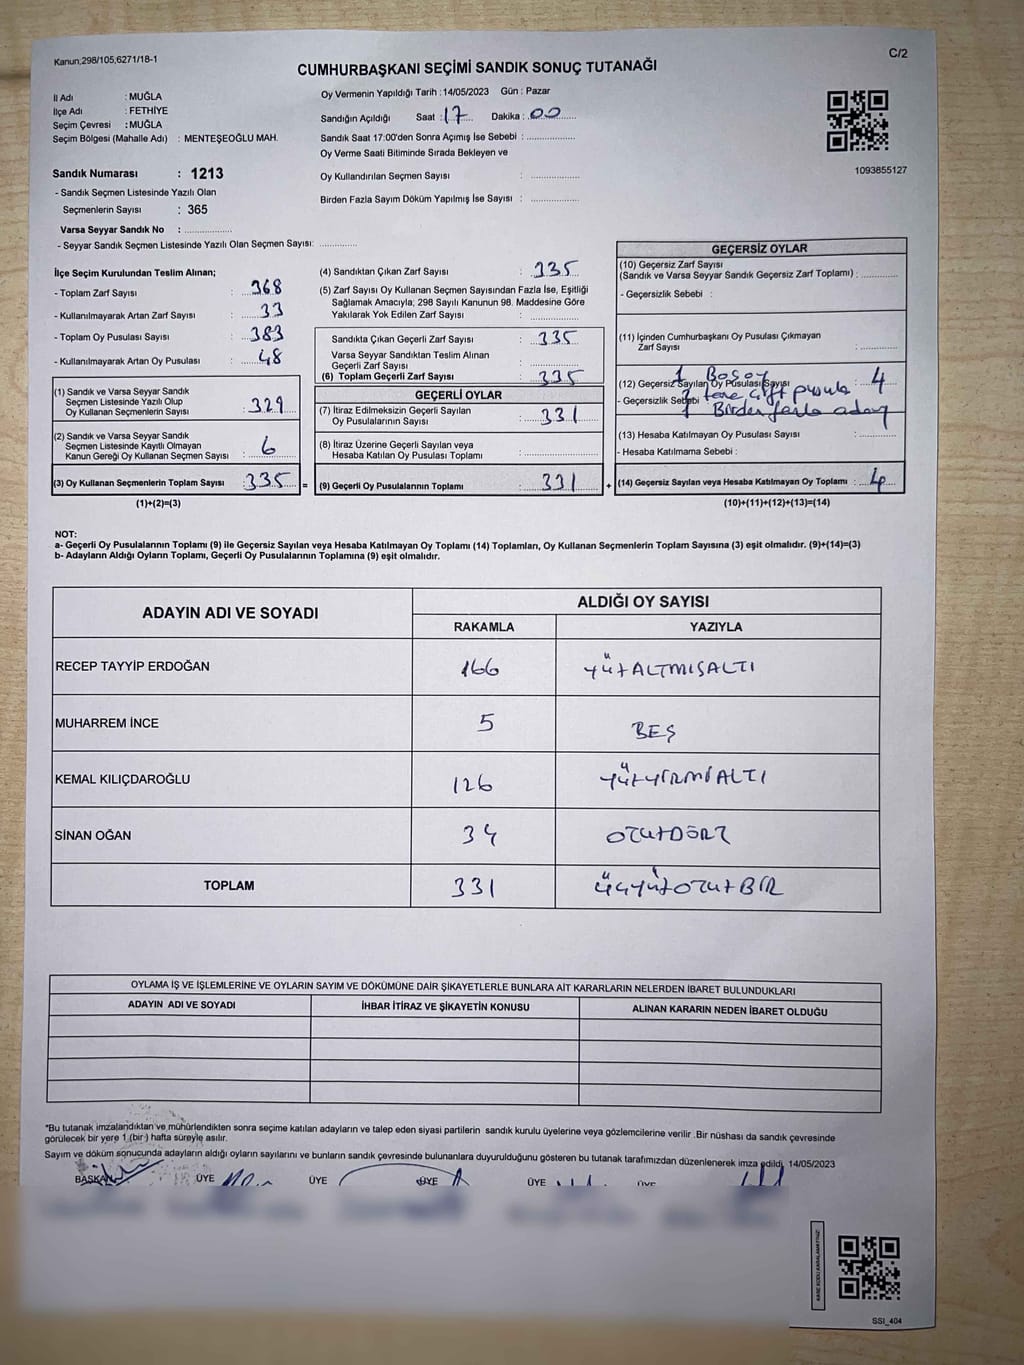 Kanun,298/105,6271/18-1
C/2
CUMHURBAŞKANI SEÇİMİ SANDIK SONUÇ TUTANAĞI
İl Adı : MUĞLA
İlçe Adı : FETHİYE
Seçim Çevresi : MUĞLA
Seçim Bölgesi (Mahalle Adı) : MENTEŞEOĞLU MAH.
Sandık Numarası : 1213
- Sandık Seçmen Listesinde Yazılı Olan
Seçmenlerin Sayısı : 365
Varsa Seyyar Sandık No : ..............
- Seyyar Sandık Seçmen Listesinde Yazılı Olan Seçmen Sayısı: ............
Oy Vermenin Yapıldığı Tarih :14/05/2023 Gün : Pazar
Sandığın Açıldığı Saat : 17 Dakika : 00
Sandık Saat 17:00'den Sonra Açımış İse Sebebi : ..............
Oy Verme Saati Bitiminde Sırada Bekleyen ve
Oy Kullandırılan Seçmen Sayısı : ..............
Birden Fazla Sayım Döküm Yapılmış İse Sayısı : ..............
1093855127
İlçe Seçim Kurulundan Teslim Alınan;
- Toplam Zarf Sayısı : 368
- Kullanılmayarak Artan Zarf Sayısı : 33
- Toplam Oy Pusulası Sayısı : 383
- Kullanılmayarak Artan Oy Pusulası : 48
(1) Sandık ve Varsa Seyyar Sandık
Seçmen Listesinde Yazılı Olup
Oy Kullanan Seçmenlerin Sayısı : 329
(2) Sandık ve Varsa Seyyar Sandık
Seçmen Listesinde Kayıtlı Olmayan
Kanun Gereği Oy Kullanan Seçmen Sayısı : 6
(3) Oy Kullanan Seçmenlerin Toplam Sayısı : 335 =
(1)+(2)=(3)
(4) Sandıktan Çıkan Zarf Sayısı : 335
(5) Zarf Sayısı Oy Kullanan Seçmen Sayısından Fazla İse, Eşitliği
Sağlamak Amacıyla; 298 Sayılı Kanunun 98. Maddesine Göre
Yakılarak Yok Edilen Zarf Sayısı : ..............
Sandıkta Çıkan Geçerli Zarf Sayısı : 335
Varsa Seyyar Sandıktan Teslim Alınan
Geçerli Zarf Sayısı : ..............
(6) Toplam Geçerli Zarf Sayısı : 335
GEÇERLİ OYLAR
(7) İtiraz Edilmeksizin Geçerli Sayılan
Oy Pusulalarının Sayısı : 331
(8) İtiraz Üzerine Geçerli Sayılan veya
Hesaba Katılan Oy Pusulası Toplamı : ..............
(9) Geçerli Oy Pusulalarının Toplamı : 331 +
GEÇERSİZ OYLAR
(10) Geçersiz Zarf Sayısı
(Sandık ve Varsa Seyyar Sandık Geçersiz Zarf Toplamı) : ............
- Geçersizlik Sebebi :
(11) İçinden Cumhurbaşkanı Oy Pusulası Çıkmayan
Zarf Sayısı : ............
1 Boş oy
(12) Geçersiz Sayılan Oy Pusulası Sayısı : 4
- Geçersizlik Sebebi 2 tane çift pusula
1 Birden fazla aday
(13) Hesaba Katılmayan Oy Pusulası Sayısı : ............
- Hesaba Katılmama Sebebi :
(14) Geçersiz Sayılan veya Hesaba Katılmayan Oy Toplamı : 4
(10)+(11)+(12)+(13)=(14)
NOT:
a- Geçerli Oy Pusulalarının Toplamı (9) ile Geçersiz Sayılan veya Hesaba Katılmayan Oy Toplamı (14) Toplamları, Oy Kullanan Seçmenlerin Toplam Sayısına (3) eşit olmalıdır. (9)+(14)=(3)
b- Adayların Aldığı Oyların Toplamı, Geçerli Oy Pusulalarının Toplamına (9) eşit olmalıdır.
ADAYIN ADI VE SOYADI
ALDIĞI OY SAYISI
RAKAMLA YAZIYLA
RECEP TAYYİP ERDOĞAN 166 YÜZALTMIŞALTI
MUHARREM İNCE 5 BEŞ
KEMAL KILIÇDAROĞLU 126 YÜZYİRMİALTI
SİNAN OĞAN 34 OTUZDÖRT
TOPLAM 331 ÜÇYÜZOTUZBİR
OYLAMA İŞ VE İŞLEMLERİNE VE OYLARIN SAYIM VE DÖKÜMÜNE DAİR ŞİKAYETLERLE BUNLARA AİT KARARLARIN NELERDEN İBARET BULUNDUKLARI
ADAYIN ADI VE SOYADI İHBAR İTİRAZ VE ŞİKAYETİN KONUSU ALINAN KARARIN NEDEN İBARET OLDUĞU
*Bu tutanak imzalandıktan ve mühürlendikten sonra seçime katılan adayların ve talep eden siyasi partilerin sandık kurulu üyelerine veya gözlemcilerine verilir .Bir nüshası da sandık çevresinde
görülecek bir yere 1 (bir ) hafta süreyle asılır.
Sayım ve döküm sonucunda adayların aldığı oyların sayılarını ve bunların sandık çevresinde bulunanlara duyurulduğunu gösteren bu tutanak tarafımızdan düzenlenerek imza edildi. 14/05/2023
BAŞKAN ÜYE ÜYE ÜYE ÜYE ÜYE
KARE KODU KARALAMAYINIZ!
SSI_404